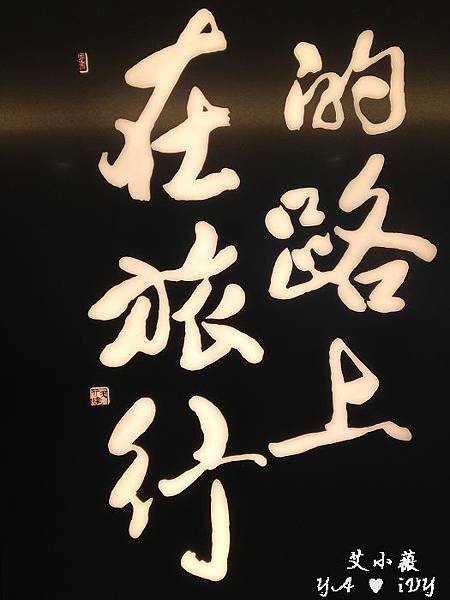 在旅行
的路上
艾小薇
YA ♥ iVY